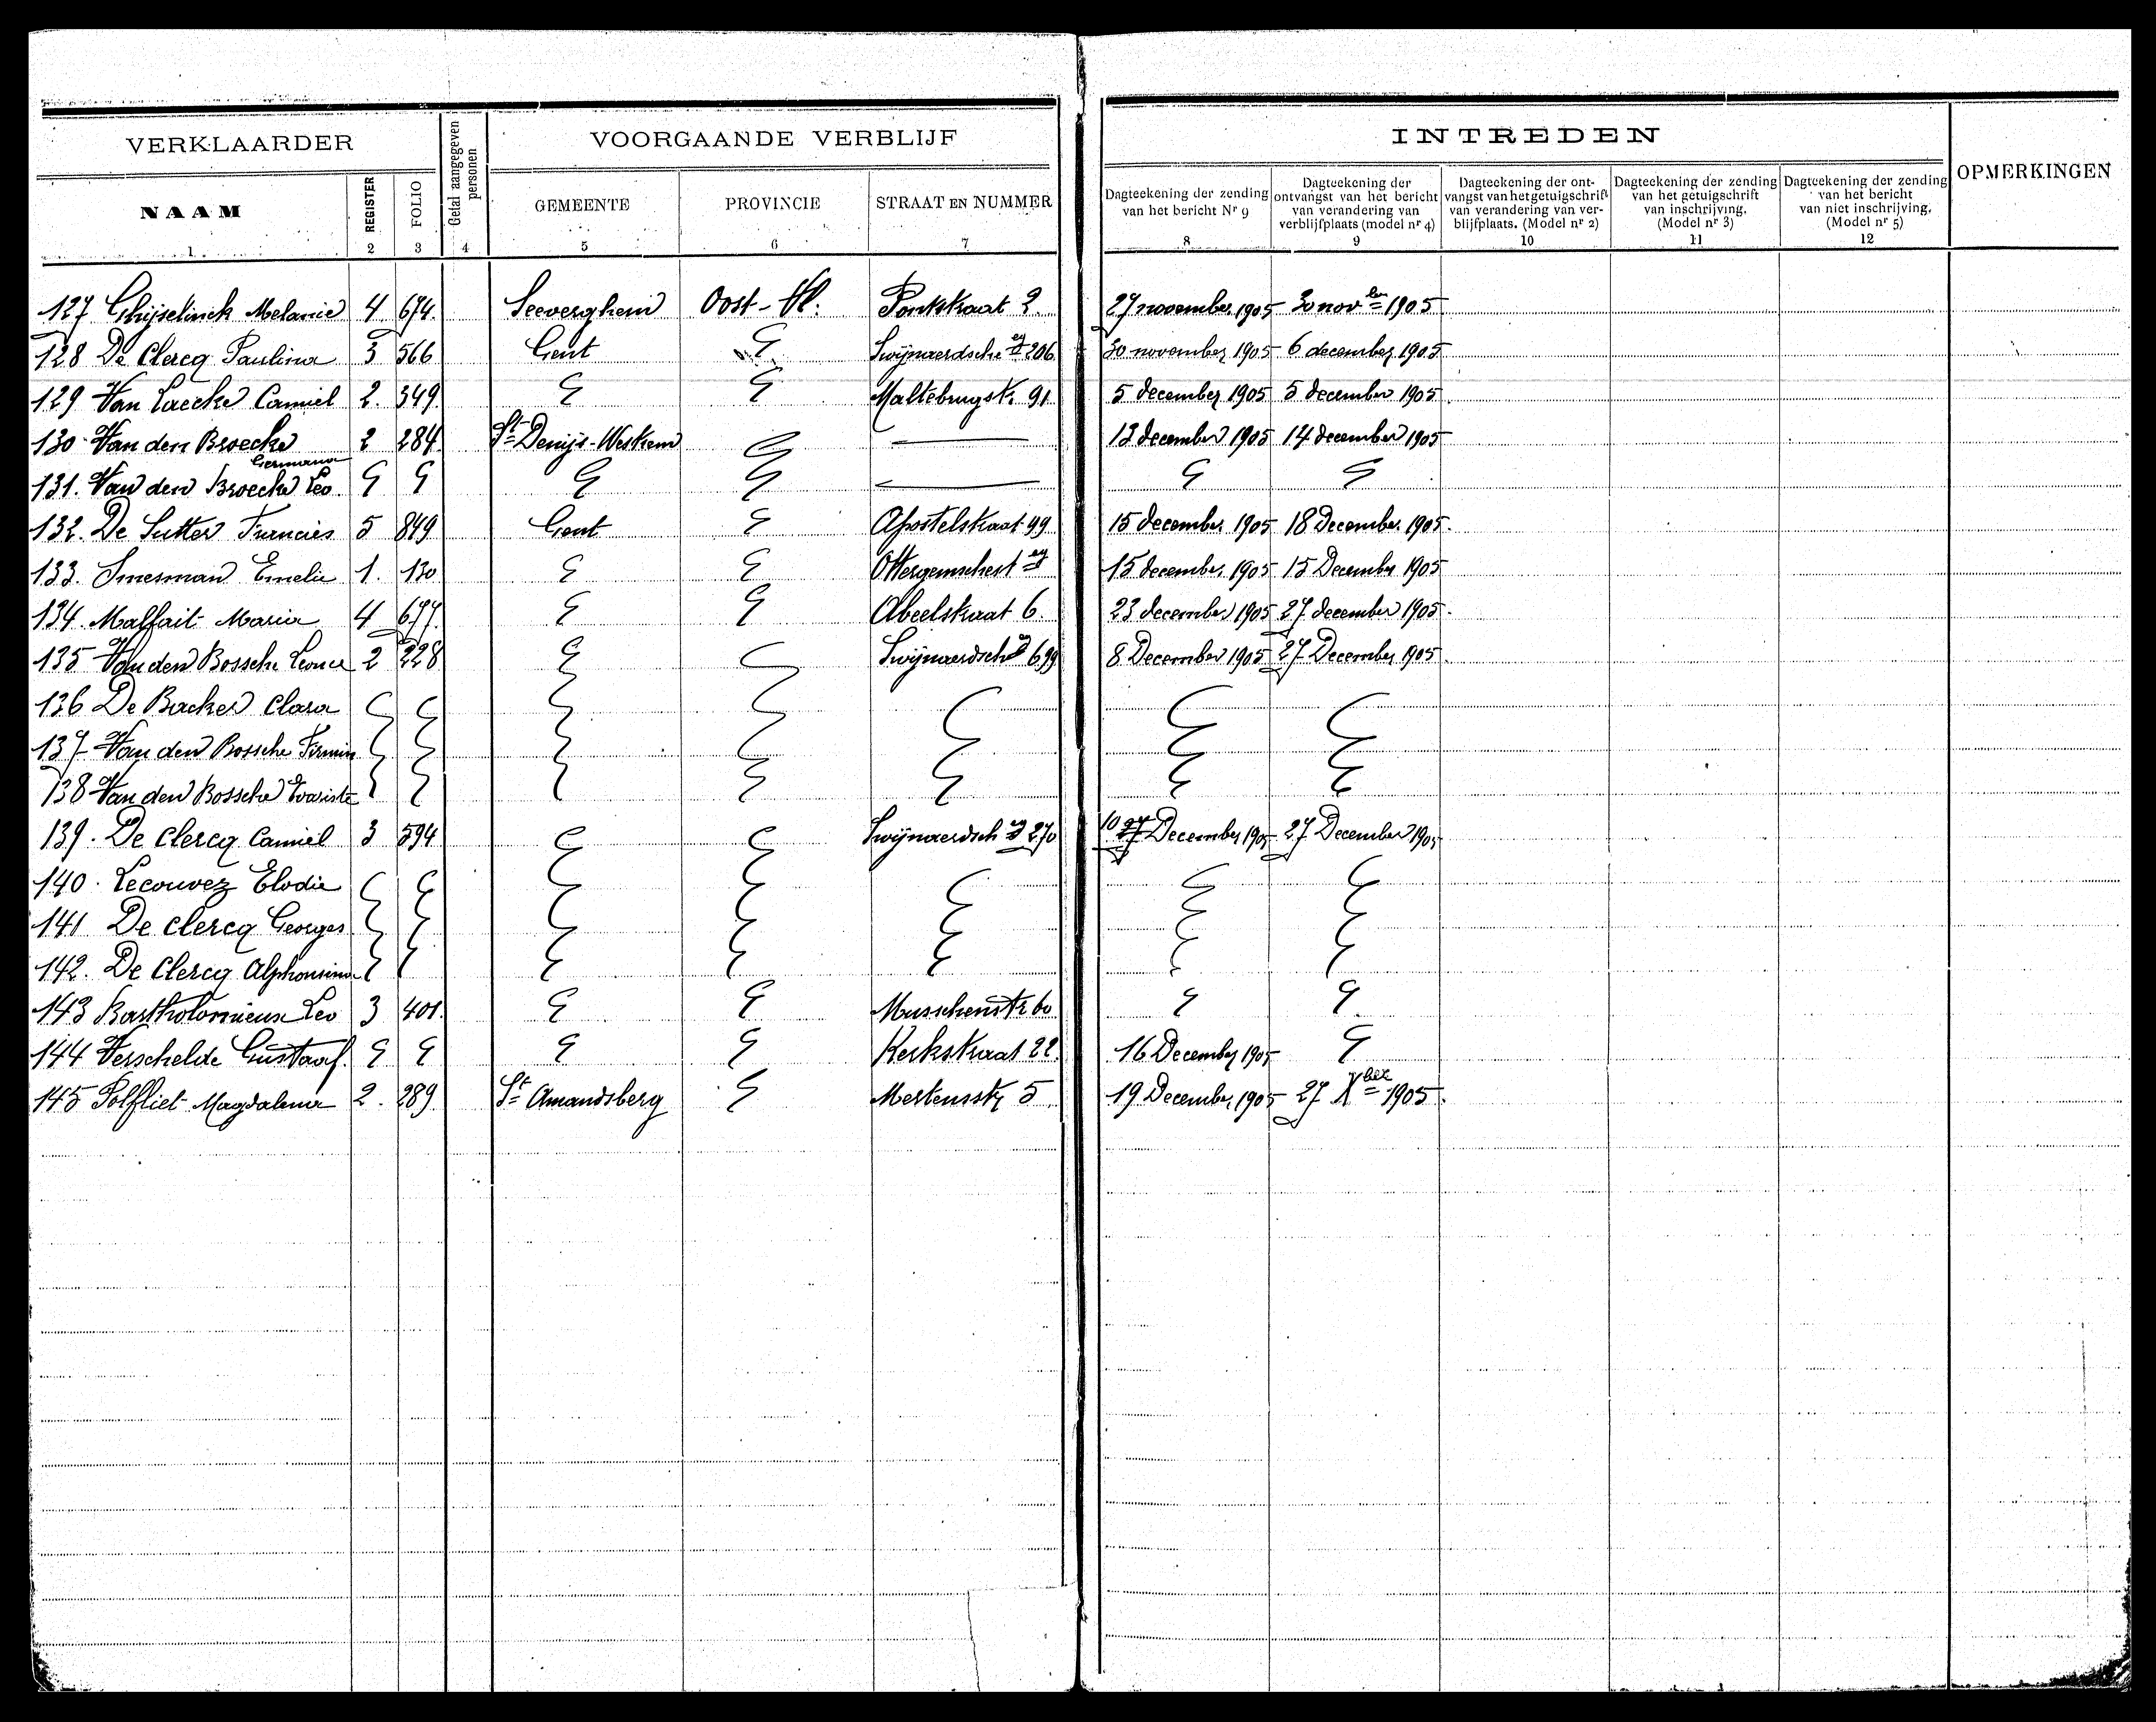 VERKLAARDER
Getal aangegeven personen
VOORGAANDE VERBLIJF
INTREDEN
OPMERKINGEN
NAAM
REGISTER
FOLIO
GEMEENTE
PROVINCIE
STRAAT EN NUMMER
Dagteekening der zending van het bericht Nr 9
Dagteekening der ontvangst van het bericht van verandering van verblijfplaats (model nr 4)
Dagteekening der ontvangst van het getuigschrift van verandering van verblijfplaats. (Model nr 2)
Dagteekening der zending van het getuigschrift van inschrijving. (Model nr 3)
Dagteekening der zending van het bericht van niet inschrijving. (Model nr 5)
1 2 3 4 5 6 7 8 9 10 11 12
127 Ghijselinck Melanie 4 674 Seeverghem Oost-Vl. Pontstraat 2 27 november 1905 30 nov ber 1905
128 De Clercq Paulina 3 566 Gent Swijnaerdsche stg 206 30 november 1905 6 december 1905
129 Van Laecke Camiel 2. 349 Maltebrugst. 91 5 december 1905 5 december 1905
130 Van den Broecke Germana 2 284 St Denijs-Westrem 13 december 1905 14 december 1905
131. Van den Broecke Leo
132. De Sutter Francies 5 849 Gent Apostelstraat 99 15 december 1905 18 December 1905.
133. Smesman Emelie 1. 130 Ottergemschest 15 december 1905 15 December 1905
134 Malfait Maria 4 677. Abeelstraat 6. 23 december 1905 27 december 1905.
135 Van den Bossche Leonce 2 228 Swijnaerdsch 699 8 December 1905 27 December 1905.
136 De Backer Clara
137 Van den Bossche Firmin
138 Van den Bossche Evariste
139. De Clercq Camiel 3 594 Swijnaerdsch 270 10 27 December 1905 27 December 1905
140. Lecouvez Elodie
141 De Clercq Georges
142. De Clercq Alphonsina
143 Bartholomieus Leo 3 401. Musschenstr 60
144 Verschelde Gustaaf. Kerkstraat 22. 16 December 1905
145 Polfliet Magdalena 2. 289 St Amandsberg Mertensstr 5 19 December 1905 27 Xber 1905.